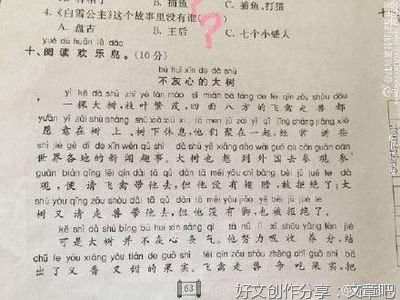 B. 捕猎 C. 捕鱼、打猎
4.《白雪公主》这个故事里没有谁(
A. 盘古 B. 王后 C. 七个小矮人
yuè dú huān lè dǎo
十、阅读欢乐岛。(10分)
bù huī xīn de dà shù
不灰心的大树
yì kē dà shù zhī yè fán mào sì miàn bā fāng de fēi qín zǒu shòu dōu
一棵大树,枝叶繁茂,四面八方的飞禽走兽都
yuàn yì zài shù shàng shù xià xiū xi tā men jù zài yì qǐ jīng cháng jiǎng xiē
愿意在树上、树下休息,他们聚在一起,经常讲些
shì jiè gè dì de xīn wén qù shì dà shù yě xiǎng dào wài guó qù cān guān cān
世界各地的新闻趣事。大树也想到外国去参观参
guān biàn qǐng fēi qín dài tā qù dàn tā méi yǒu chì bǎng bèi jù jué le dà
观,便请飞禽带他去,但他没有翅膀,被拒绝了;大
shù yòu qǐng zǒu shòu dài tā qù dàn tā méi yǒu jiǎo yě bèi jù jué le
树又请走兽带他去,但他没有脚,也被拒绝了。
kě shì dà shù bìng bù huī xīn sàng qì tā nǔ lì xī shōu yǎng fèn jiē
可是大树并不灰心丧气。他努力吸收养分,结
chū le yòu xiāng yòu tián de guǒ shí fēi qín zǒu shòu zhēng chī guǒ shí bǎ
出了又香又甜的果实。飞禽走兽争吃果实,把
63
好文分享 @文章吧